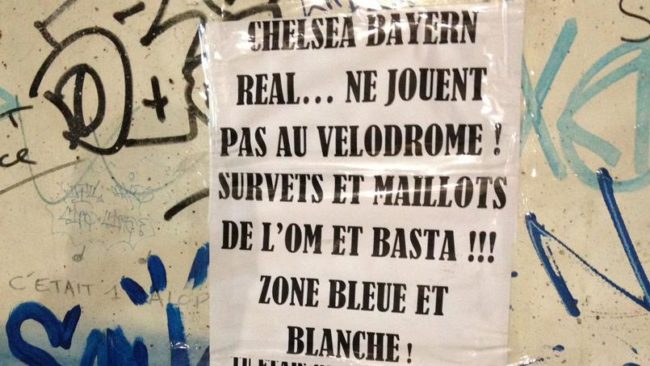 CHELSEA BAYERN
REAL... NE JOUENT
PAS AU VELODROME !
SURVETS ET MAILLOTS
DE L'OM ET BASTA !!!
ZONE BLEUE ET
BLANCHE !
C'ÉTAIT 1